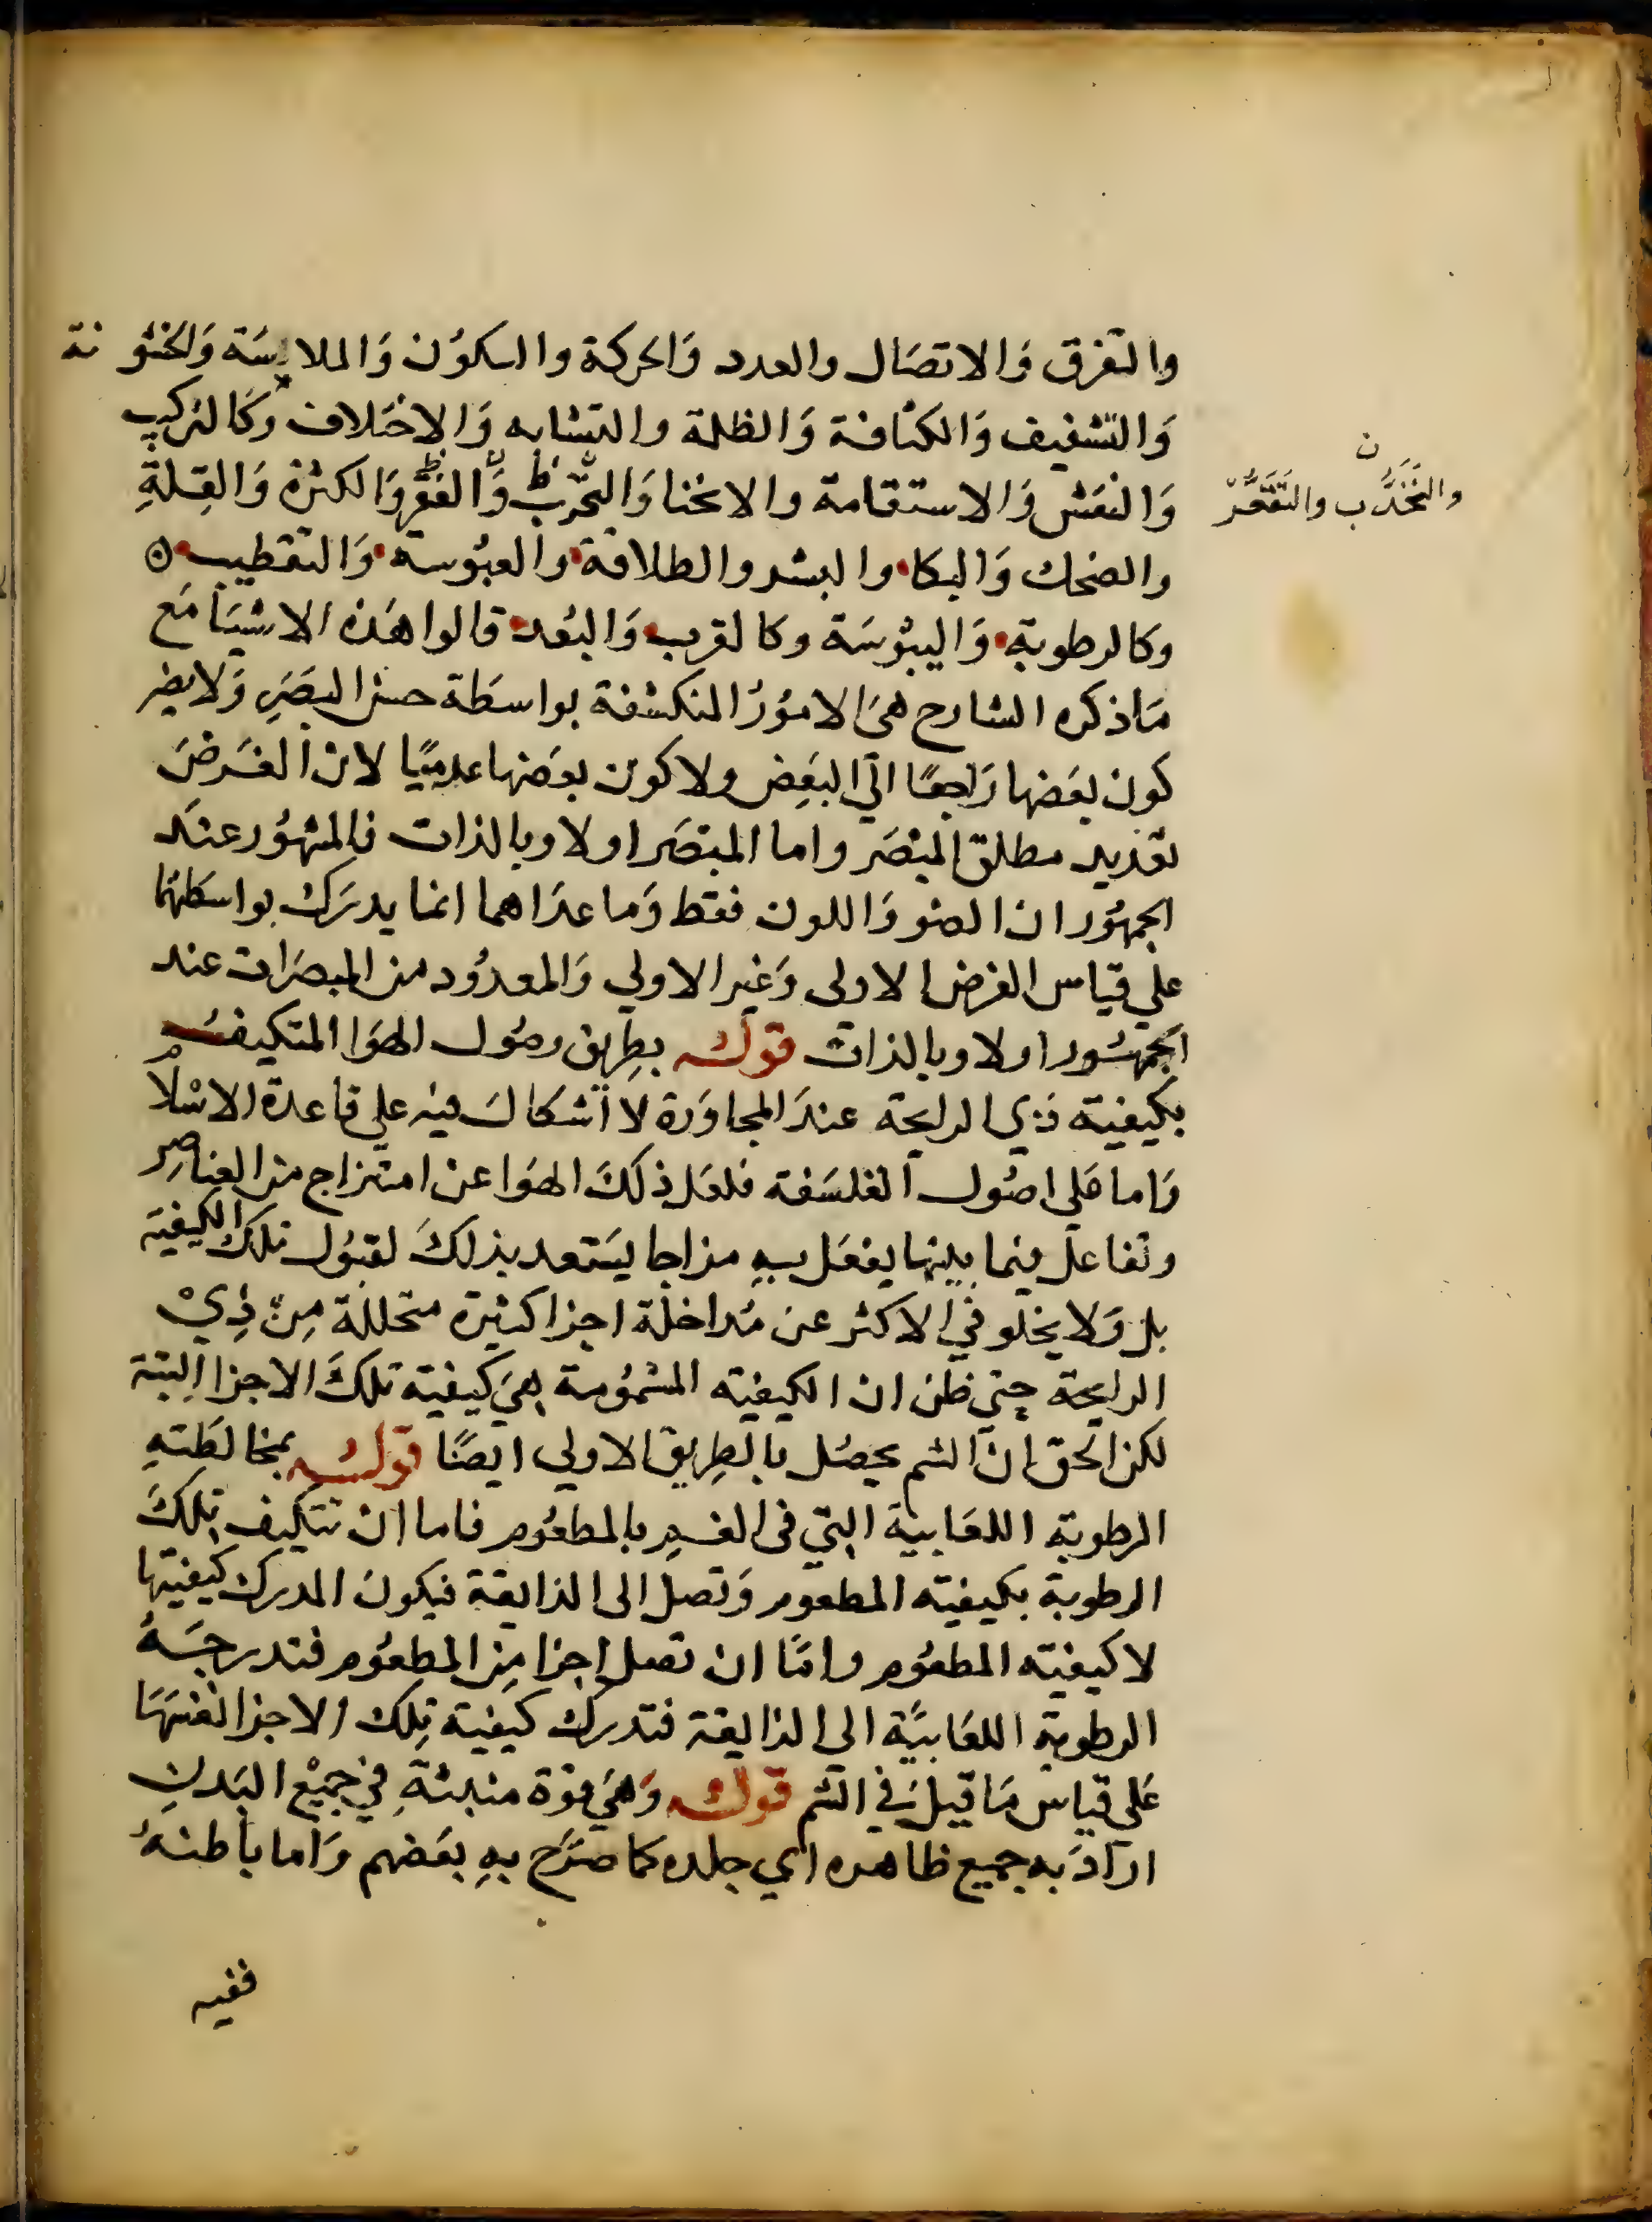 والتفرق وَالاتصَال والعدد وَالحركة والسكوُن وَالملاسَة وَالخشونة
وَالتشفيف وَالكثافة وَالظلمة والتشابه وَالاختلاف وَكالتركيب
وَالنقش وَالاستقامة والانحنا وَالتحرب وَالفقر وَالكثرة وَالقِلةِ
والتَحَدُّب والتَقَعُّر
ن
والضحك وَالبكا والبشر والطلاقة والعبُوسة وَالتقطيب ه
وكالرطوبة وَاليبُوسَة وكالقرب وَالبُعد قالوا هَذه الاشيَا مَع
مَا ذكره الشارح هىَ الامُورُ المنكشفة بواسطَة حسّ البصَرِ وَلا يضر
كون بعَضها رَاجعًا الَي البَعِض ولا كون بعضها عدميًا لان الغَرضَ
تعَديد مطلق المبْصَر واما المبتصَر اولا وبالذات فالمشهُور عنَد
الجمهُور ان الضو وَاللون فقط وَما عدَاهما انما يدرَك بواسَطتهما
علي قياس الغرض الاولى وَغير الاولي وَالمعدُود من المبصَرات عند
الجمهُور اولا وبالذات قوله بطِريق وصُول الهوَا المتكيف
بكيفية ذي الرايحة عندَ المجاوَرة لا اشكالَ فيه علي قاعدة الاسْلام
وَاما عَلي اصُول الفلسَفة فلعَل ذلكَ الهوَا عن امتزاج من العناصِر
وتفاعل فيما بينها يفعَل بهِ مزاجا يسَتعد بذلكَ لقبُول تلك الكيفية
بل وَلا يخلو في الاكثر عن مُداخلة اجزا كثيرة متحللة مِن ذِيْ
الرايحة حتي ظن ان الكيفيته المشمُومة هِيَ كيفية تلكَ الاجزا البتة
لكن الحق ان الشم يحصُل بالطِريق الاولي ايضًا قوله بمخالطَتهِ
الرطوبة اللعَابية التي فى الفمِ بالمطعُوم فاما ان تتكيف تلكَ
الرطوبة بكيفيته المطعوم وَتصل الى الذايقة فيكون المدرك كيفيتها
لا كيفيته المطعوُم وامَّا ان تصل اجزا مِن المطعُوم فتدرجَهُ
الرطوبة اللعَابيَّة الي الذايقة فتدرك كيفية تِلك الاجزا نفسَهَا
عَلي قياس مَا قيل في الشم قوله وَهيَ قوة منبثةِ في جَميْع البَدنِ
ارَادَ به جميع ظاهره اي جلده كما صَرَح بهِ بعَضهم وَاما باطنهُ
ففيه